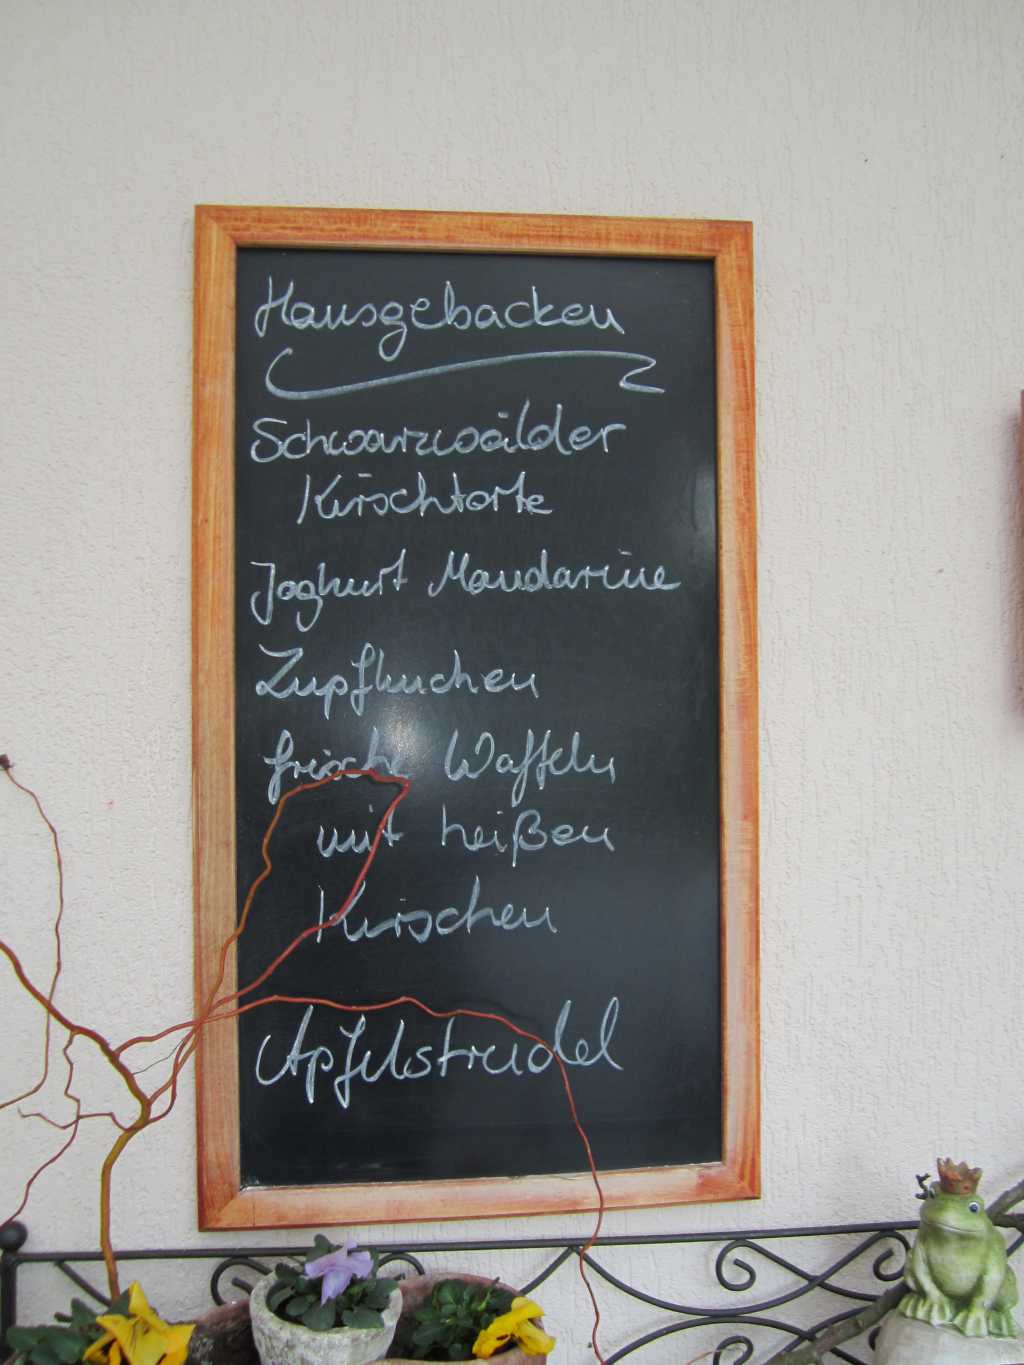 Hausgebacken
Schwarzwälder
Kirschtorte
Joghurt Mandarine
Zupfkuchen
frische Waffeln
mit heißen
Kirschen
Apfelstrudel